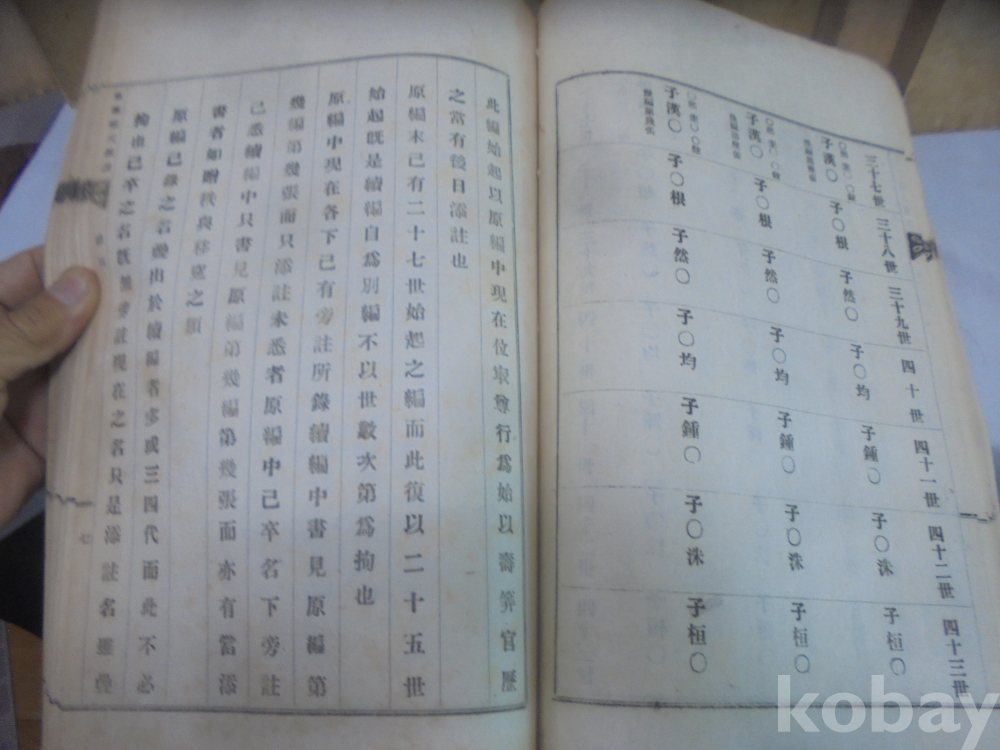 三十七世 三十八世 三十九世 四十世 四十一世 四十二世 四十三世
子漢〇 子〇根 子然〇 子〇均 子鍾〇 子〇洙 子桓〇
子漢〇 子〇根 子然〇 子〇均 子鍾〇 子〇洙 子桓〇
子漢〇 子〇根 子然〇 子〇均 子鍾〇 子〇洙 子桓〇
此編始起以原編中現在位最尊行爲始以壽筭官歷
之當有後日添註也
原編末已有二十七世始起之編而此復以二十五世
始起旣是續編自爲別編不以世數次第爲拘也
原編中現在各下已有旁註所錄續編中書見原編第
幾編第幾張而只添註未悉者原編中已卒名下旁註
已悉續編中只書見原編第幾編第幾張而亦有當添
書者如贈秩與移窆之類
原編已錄之名疊出於續編者多或三四代而此不必
拘由已卒之名旣無旁註現在之名只是添註名雖疊
七
kobay